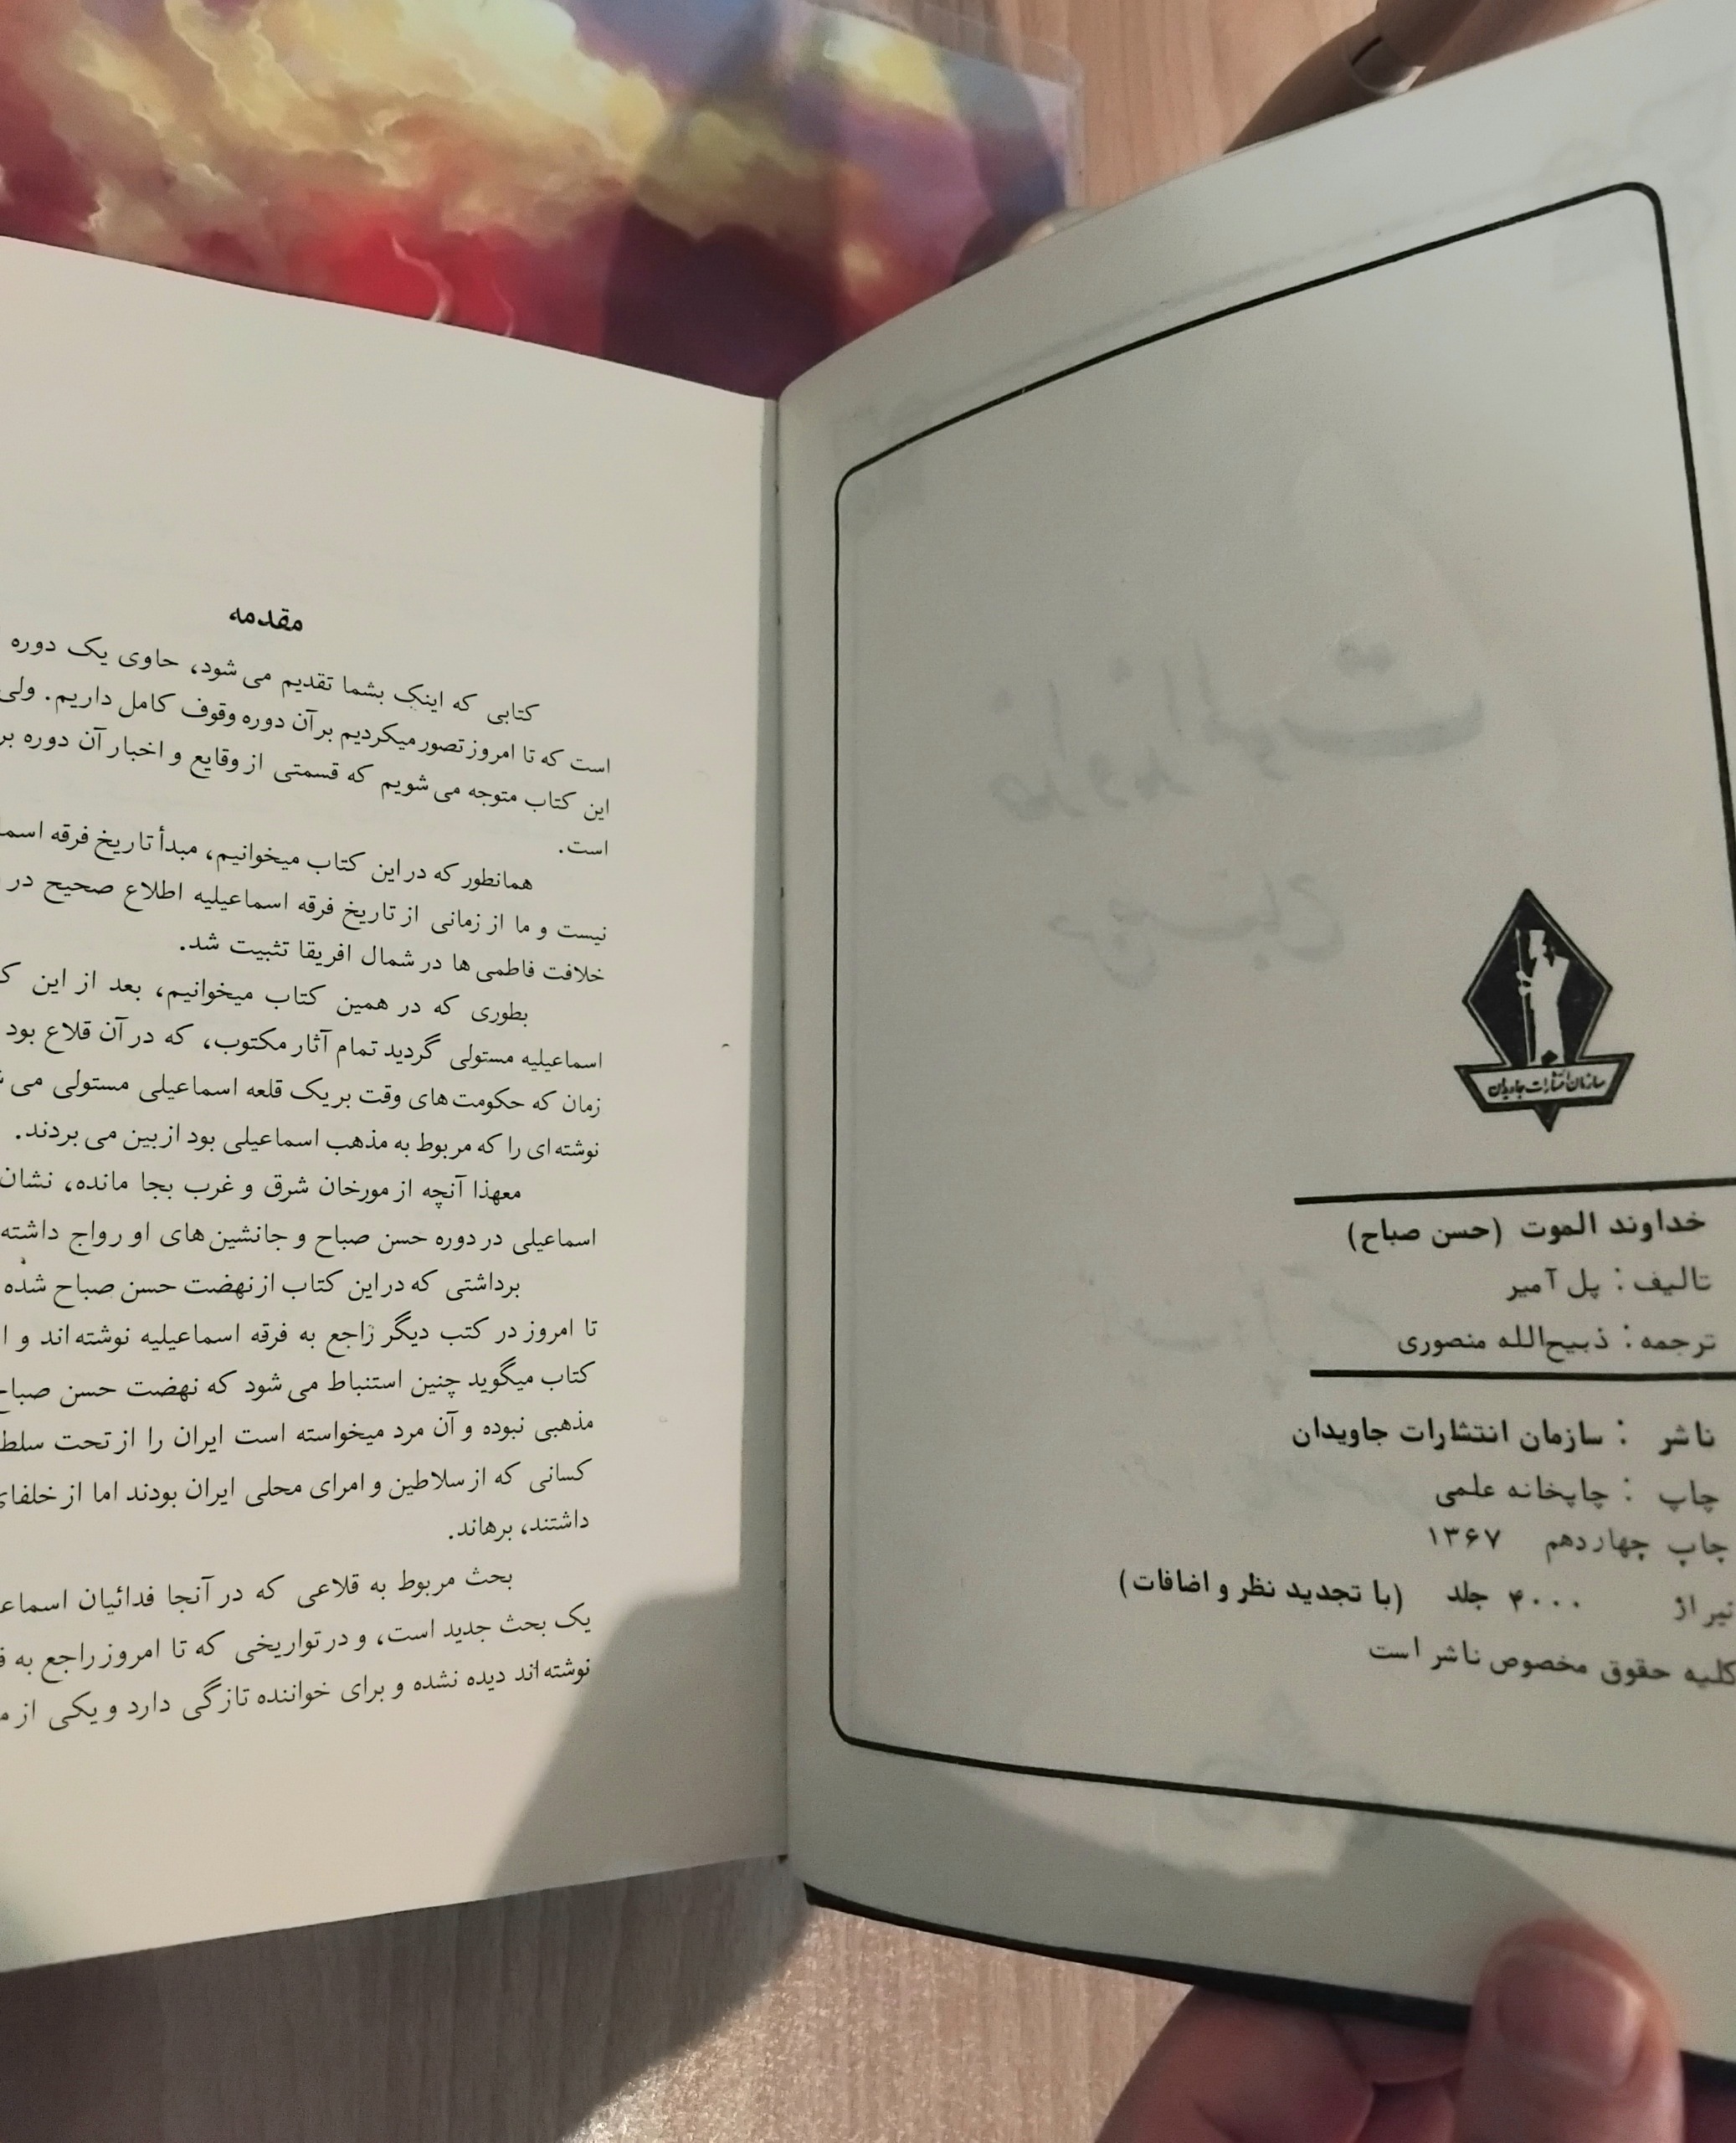 سازمان انتشارات جاویدان
خداوند الموت (حسن صباح)
تالیف : پل آمیر
ترجمه : ذبیح‌الله منصوری
ناشر : سازمان انتشارات جاویدان
چاپ : چاپخانه علمی
چاپ چهاردهم ۱۳۶۷
تیراژ ۴۰۰۰ جلد (با تجدید نظر و اضافات)
کلیه حقوق مخصوص ناشر است
مقدمه
کتابی که اینک بشما تقدیم می‌شود، حاوی یک دوره
است که تا امروز تصور میکردیم بر آن دوره وقوف کامل داریم. ولی
این کتاب متوجه می‌شویم که قسمتی از وقایع و اخبار آن دوره بر
است.
همانطور که در این کتاب میخوانیم، مبدأ تاریخ فرقه
نیست و ما از زمانی از تاریخ فرقه اسماعیلیه اطلاع صحیح در
خلافت فاطمی‌ها در شمال افریقا تثبیت شد.
بطوری که در همین کتاب میخوانیم، بعد از این
اسماعیلیه مستولی گردید تمام آثار مکتوب، که در آن قلاع بود
زمان که حکومت‌های وقت بر یک قلعه اسماعیلی مستولی می
نوشته‌ای را که مربوط به مذهب اسماعیلی بود از بین می بردند.
معهذا آنچه از مورخان شرق و غرب بجا مانده، نشان
اسماعیلی در دوره حسن صباح و جانشین‌های او رواج داشته
برداشتی که در این کتاب از نهضت حسن صباح شده
تا امروز در کتب دیگر راجع به فرقه اسماعیلیه نوشته‌اند و
کتاب میگوید چنین استنباط می‌شود که نهضت حسن صباح
مذهبی نبوده و آن مرد میخواسته است ایران را از تحت
کسانی که از سلاطین و امرای محلی ایران بودند اما از خلفای
داشتند، برهاند.
بحث مربوط به قلاعی که در آنجا فدائیان
یک بحث جدید است، و در تواریخی که تا امروز راجع به
نوشته‌اند دیده نشده و برای خواننده تازگی دارد و یکی از